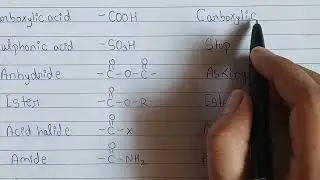 arboxylic acid -COOH Carboxylic
ulphonic acid -SO₃H Stop
Anhydride -C-O-C-
O O
Ester -C-O-R
O
Acid halide -C-X
O
Amide -C-NH₂